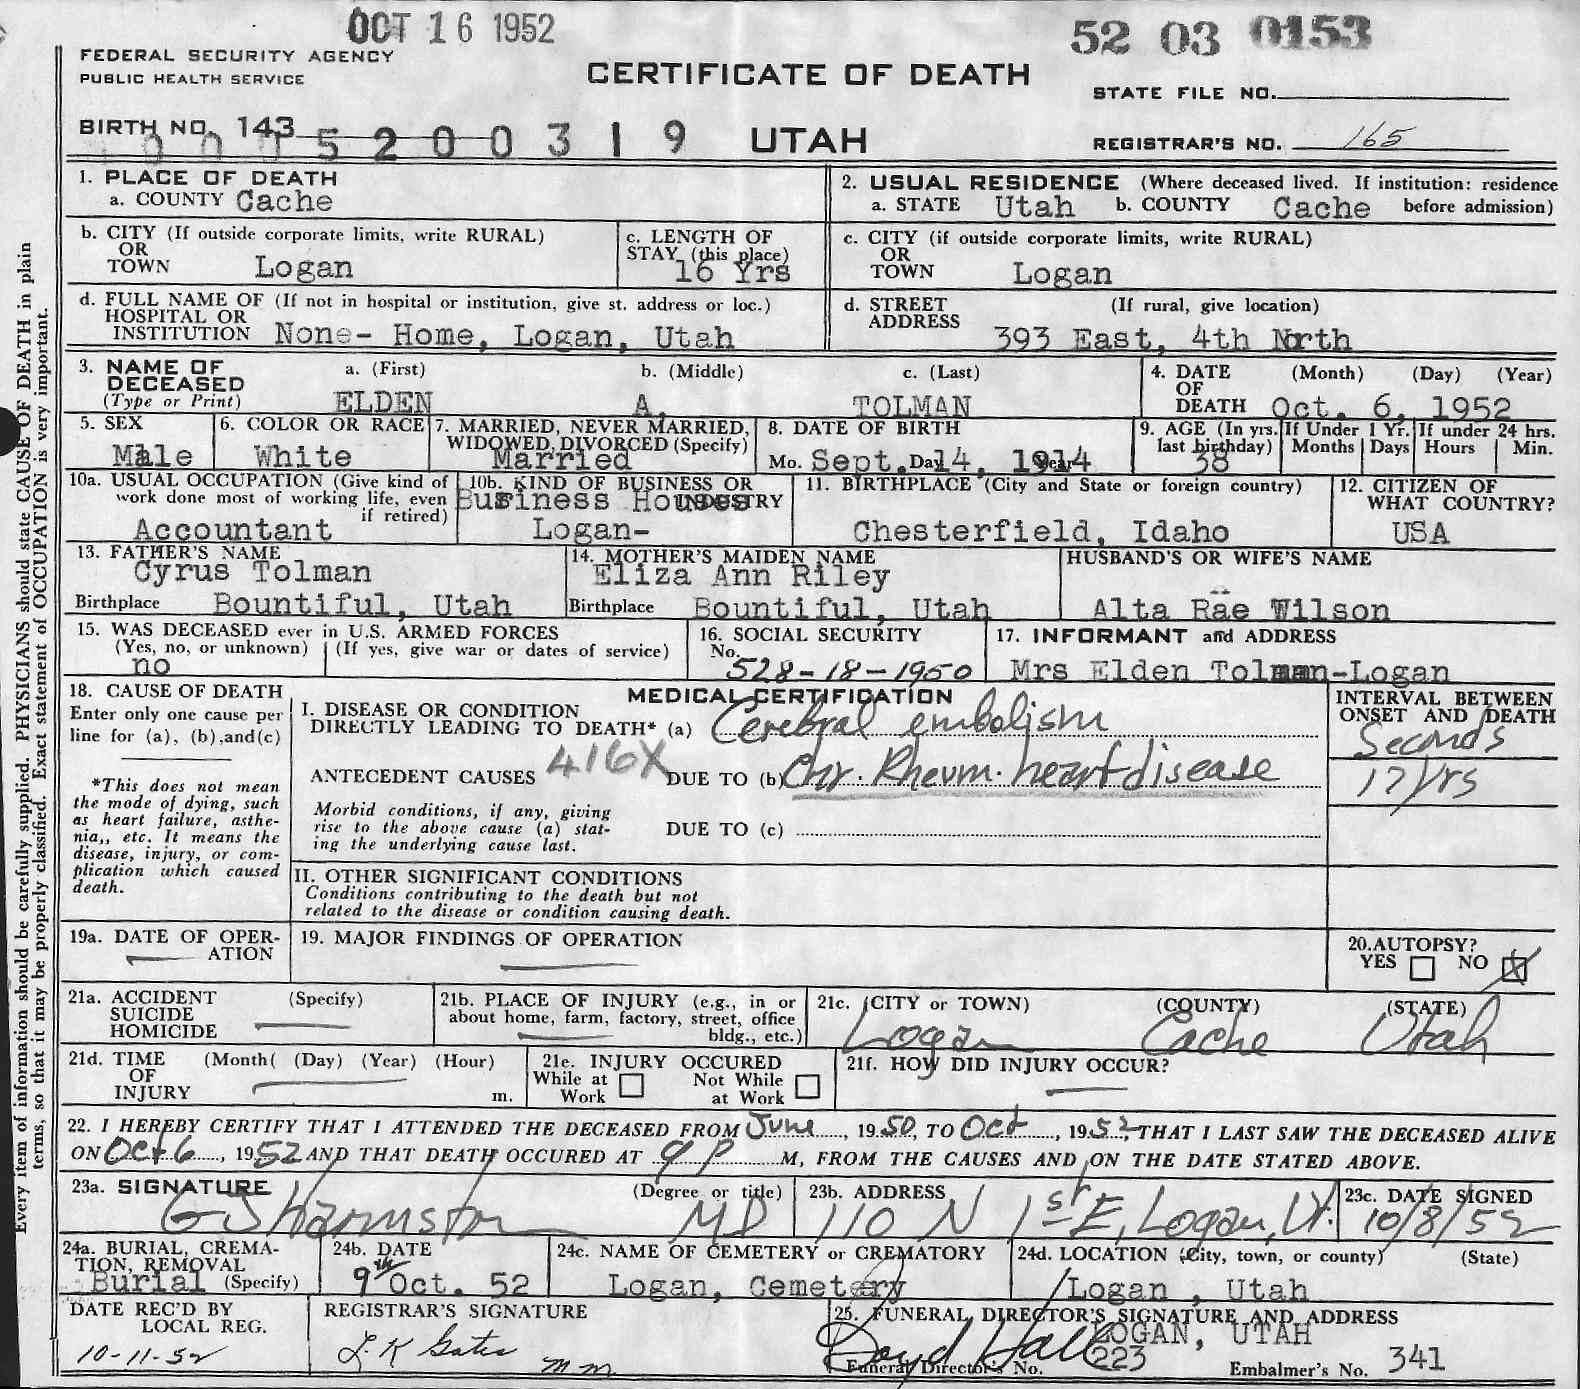 OCT 16 1952
52 03 0153
FEDERAL SECURITY AGENCY
PUBLIC HEALTH SERVICE
CERTIFICATE OF DEATH
STATE FILE NO.
BIRTH NO. 143
5200319
UTAH
REGISTRAR'S NO. 165
1. PLACE OF DEATH
a. COUNTY Cache
2. USUAL RESIDENCE (Where deceased lived. If institution: residence before admission)
a. STATE Utah b. COUNTY Cache
b. CITY (If outside corporate limits, write RURAL)
OR
TOWN Logan
c. LENGTH OF
STAY (this place)
16 Yrs
c. CITY (if outside corporate limits, write RURAL)
OR
TOWN Logan
d. FULL NAME OF (If not in hospital or institution, give st. address or loc.)
HOSPITAL OR
INSTITUTION None- Home, Logan, Utah
d. STREET (If rural, give location)
ADDRESS
393 East, 4th North
3. NAME OF
DECEASED
(Type or Print)
a. (First) b. (Middle) c. (Last)
ELDEN A. TOLMAN
4. DATE (Month) (Day) (Year)
OF
DEATH Oct. 6, 1952
5. SEX
Male
6. COLOR OR RACE
White
7. MARRIED, NEVER MARRIED,
WIDOWED, DIVORCED (Specify)
Married
8. DATE OF BIRTH
Mo. Sept. Day 14, Year 1914
9. AGE (In yrs.
last birthday)
38
If Under 1 Yr.
Months Days
If under 24 hrs.
Hours Min.
10a. USUAL OCCUPATION (Give kind of
work done most of working life, even
if retired)
Accountant
10b. KIND OF BUSINESS OR
INDUSTRY
Business Houses
Logan-
11. BIRTHPLACE (City and State or foreign country)
Chesterfield, Idaho
12. CITIZEN OF
WHAT COUNTRY?
USA
13. FATHER'S NAME
Cyrus Tolman
Birthplace Bountiful, Utah
14. MOTHER'S MAIDEN NAME
Eliza Ann Riley
Birthplace Bountiful, Utah
HUSBAND'S OR WIFE'S NAME
Alta Rae Wilson
15. WAS DECEASED ever in U.S. ARMED FORCES
(Yes, no, or unknown) (If yes, give war or dates of service)
no
16. SOCIAL SECURITY
No.
528-18-1950
17. INFORMANT and ADDRESS
Mrs Elden Tolman-Logan
18. CAUSE OF DEATH
Enter only one cause per
line for (a), (b), and (c)
*This does not mean
the mode of dying, such
as heart failure, asthe-
nia,, etc. It means the
disease, injury, or com-
plication which caused
death.
MEDICAL CERTIFICATION
I. DISEASE OR CONDITION
DIRECTLY LEADING TO DEATH* (a) Cerebral embolism
ANTECEDENT CAUSES 416X DUE TO (b) Chr. Rheum. heart disease
Morbid conditions, if any, giving
rise to the above cause (a) stat-
ing the underlying cause last.
DUE TO (c)
II. OTHER SIGNIFICANT CONDITIONS
Conditions contributing to the death but not
related to the disease or condition causing death.
INTERVAL BETWEEN
ONSET AND DEATH
Seconds
17 Yrs
19a. DATE OF OPER-
ATION
19. MAJOR FINDINGS OF OPERATION
20. AUTOPSY?
YES NO X
21a. ACCIDENT (Specify)
SUICIDE
HOMICIDE
21b. PLACE OF INJURY (e.g., in or
about home, farm, factory, street, office
bldg., etc.)
21c. (CITY or TOWN) (COUNTY) (STATE)
Logan Cache Utah
21d. TIME (Month( (Day) (Year) (Hour)
OF
INJURY m.
21e. INJURY OCCURED
While at Work Not While at Work
21f. HOW DID INJURY OCCUR?
22. I HEREBY CERTIFY THAT I ATTENDED THE DECEASED FROM June, 1950, TO Oct, 1952, THAT I LAST SAW THE DECEASED ALIVE
ON Oct 6, 1952 AND THAT DEATH OCCURED AT 9 P M, FROM THE CAUSES AND ON THE DATE STATED ABOVE.
23a. SIGNATURE (Degree or title)
MD
23b. ADDRESS
110 N 1st E, Logan, Ut.
23c. DATE SIGNED
10/8/52
24a. BURIAL, CREMA-
TION, REMOVAL
Burial (Specify)
24b. DATE
9th Oct. 52
24c. NAME OF CEMETERY or CREMATORY
Logan, Cemetery
24d. LOCATION (City, town, or county) (State)
Logan, Utah
DATE REC'D BY
LOCAL REG.
10-11-52
REGISTRAR'S SIGNATURE
L. K Gates mm.
25. FUNERAL DIRECTOR'S SIGNATURE AND ADDRESS
Boyd Hall LOGAN, UTAH
Funeral Director's No. 223 Embalmer's No. 341
Every item of information should be carefully supplied. PHYSICIANS should state CAUSE OF DEATH in plain
terms, so that it may be properly classified. Exact statement of OCCUPATION is very important.